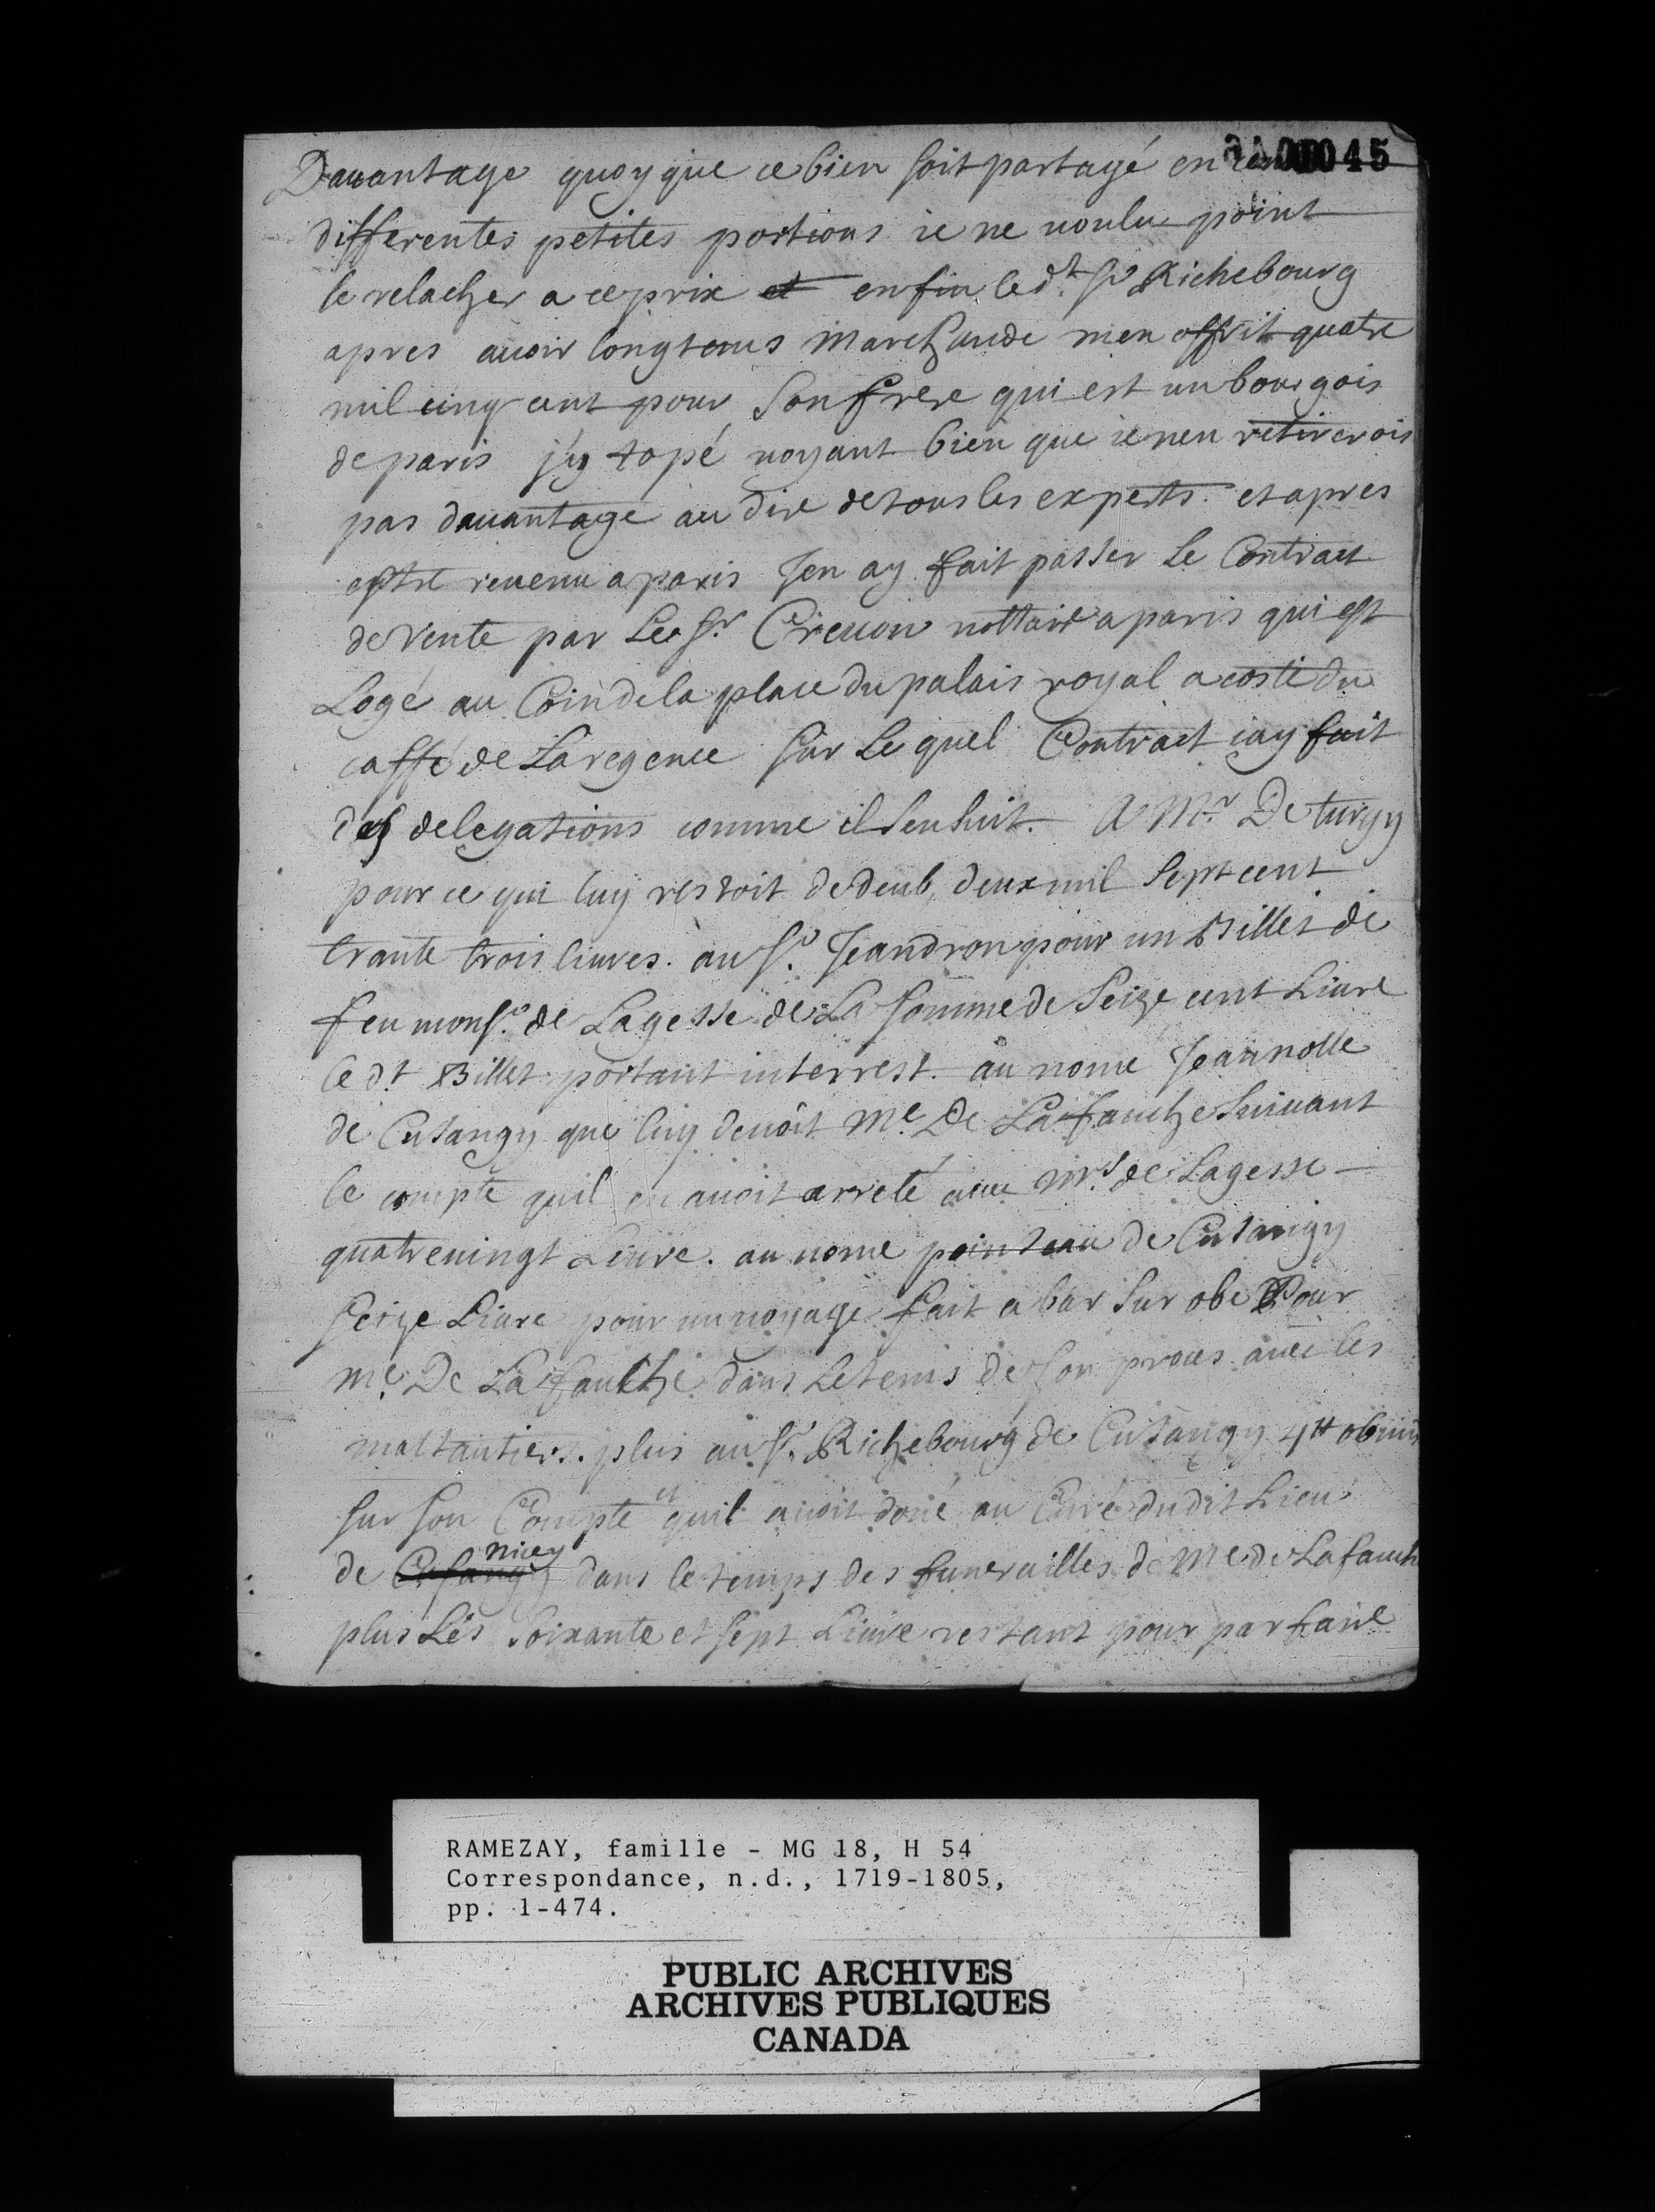 045
Dauantage quoyque ce bien soit partagé en
differentes petites portions ie ne uoulu point
le relacher a ce prix et enfin led.t Sr Richebourg
apres auoir longtems marchande men offrit quatre
mil cinq cent pour son frere qui est un bourgois
de paris j'ÿ topé uoyant bien que ie nen retirerois
pas dauantage au dire de tous les experts. et apres
estre reuenu a paris Jen ay fait passer Le Contract
de Vente par Le Sr. Creuon nottaire a paris qui est
Logé au Coin de la place du palais royal a costé du
caffé de La regence sur Le quel Contract iay fait
des delegations comme il sen suit. A Mr. De turgy
pour ce qui luy restoit de deub deux mil sept cent
trante trois liures. au Sr. Jeandron pour un Billet de
feu monsr. de Lagesse de La somme de seize cent Liure
le d.t Billet portant interrest. au nome Jeannolle
de Cusangy que luy deuoit Me. De La fauche suiuant
le compte quil en auoit arreté auec Mr. de Lagesse
quatreuingt Liure. au nome pointeau de Cusangy
seize Liure pour un uoyage fait a bar sur obe Pour
Me. De La fauche dans Le tems de son proces auec les
maltautiers. plus au Sr. Richebourg de Cusangy 4tt obmis
sur son Compte et quil auoit doné au Curé dudit Lieu
de Cusangy nicey dans le temps des funerailles de Me de La fauch
plus Les soixante et sept Liure restant pour parfaire
RAMEZAY, famille - MG 18, H 54
Correspondance, n.d., 1719-1805,
pp. 1-474.
PUBLIC ARCHIVES
ARCHIVES PUBLIQUES
CANADA